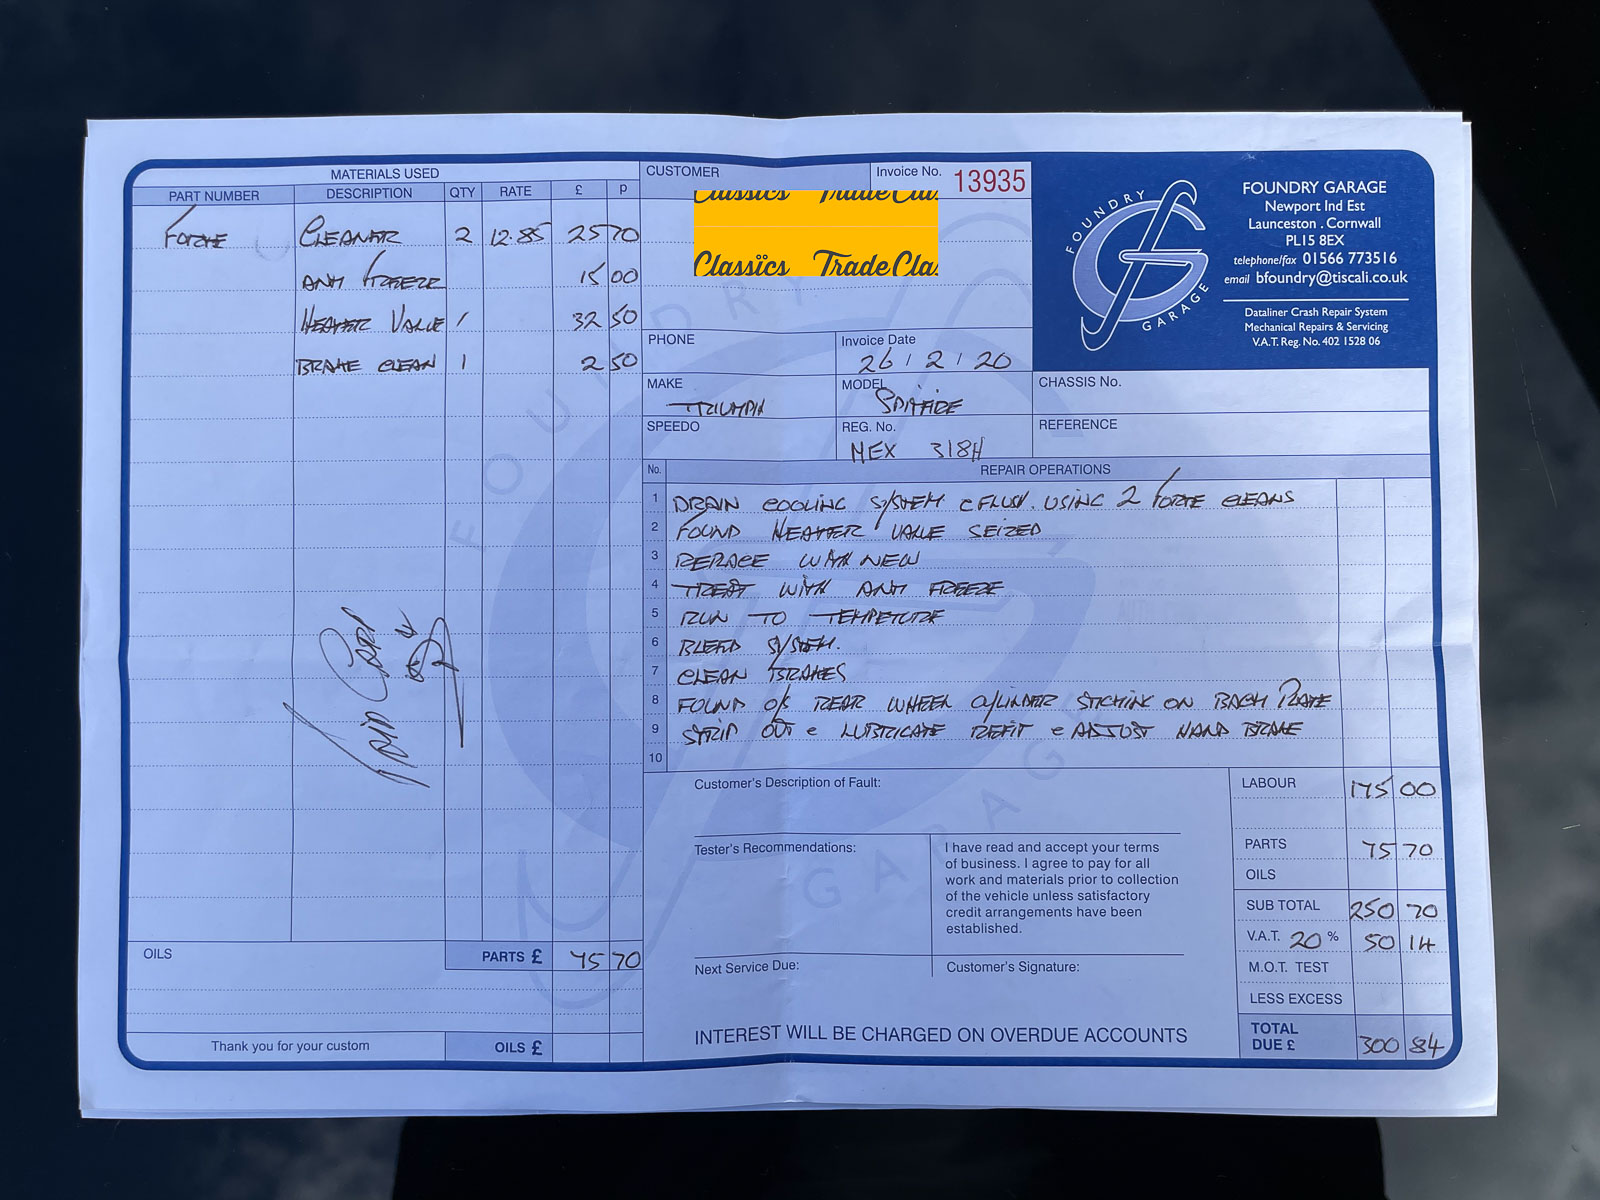 MATERIALS USED
PART NUMBER DESCRIPTION QTY RATE £ p
FORTE CLEANER 2 12.85 25 70
ANTI FREEZE 15 00
HEATER VALVE 1 32 50
BRAKE CLEAN 1 2 50
PAID CARD
OILS
PARTS £ 75 70
Thank you for your custom
OILS £
CUSTOMER
Invoice No. 13935
Classics Trade Clas
Classics Trade Cla
PHONE
Invoice Date
26 / 2 / 20
MAKE
TRIUMPH
MODEL
SPITFIRE
CHASSIS No.
SPEEDO
REG. No.
MEX 318H
REFERENCE
FOUNDRY GARAGE
FOUNDRY GARAGE
Newport Ind Est
Launceston . Cornwall
PL15 8EX
telephone/fax 01566 773516
email bfoundry@tiscali.co.uk
Dataliner Crash Repair System
Mechanical Repairs & Servicing
V.A.T. Reg. No. 402 1528 06
No. REPAIR OPERATIONS
1 DRAIN COOLING SYSTEM e FLUSH. USING 2 FORTE CLEANS
2 FOUND HEATER VALVE SEIZED
3 REPLACE WITH NEW
4 TREAT WITH ANTI FREEZE
5 RUN TO TEMPETURE
6 BLEED SYSTEM.
7 CLEAN BRAKES
8 FOUND O/S REAR WHEEL CYLINDER STICHING ON BACK PLATE
9 STRIP OUT e LUBRICATE REFIT e ADJUST HAND BRAKE
10
Customer's Description of Fault:
Tester's Recommendations:
I have read and accept your terms
of business. I agree to pay for all
work and materials prior to collection
of the vehicle unless satisfactory
credit arrangements have been
established.
Next Service Due:
Customer's Signature:
INTEREST WILL BE CHARGED ON OVERDUE ACCOUNTS
LABOUR 175 00
PARTS 75 70
OILS
SUB TOTAL 250 70
V.A.T. 20 % 50 14
M.O.T. TEST
LESS EXCESS
TOTAL
DUE £ 300 84
FOUNDRY
GARAGE